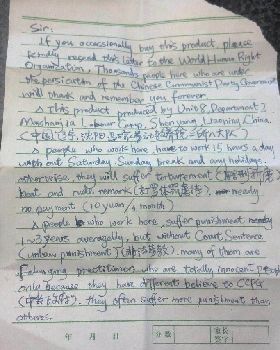 Sir:
If you occasionally buy this product, please
kindly resend this letter to the World Human Right
Organization. Thousands people here who are under
the persicution of the Chinese Communist Party Government
will thank and remember you forever.
△ This product produced by Unit 8, Department 2,
Masanjia Labour Camp, Shenyang, Liaoning, China.
(中国,辽宁,沈阳,马三家劳动教养院二所八大队)
△ people who work here have to work 15 hours a day
without Saturday, Sunday break and any holidays,
otherwise, they will suffer torturement
beat and rude remark (打骂体罚虐待), nearly
no payment (10 yuan/1 month)
△ People who work here, suffer punishment
1~3 years averagelly, but without Court Sentence
(unlaw punishment) (非法劳教). many of them are
Falungong practitioner, who are totally innocent people
only because they have different believe to CCPG
they often suffer more punishment than
others.
年 月 日
分数
家长
签字